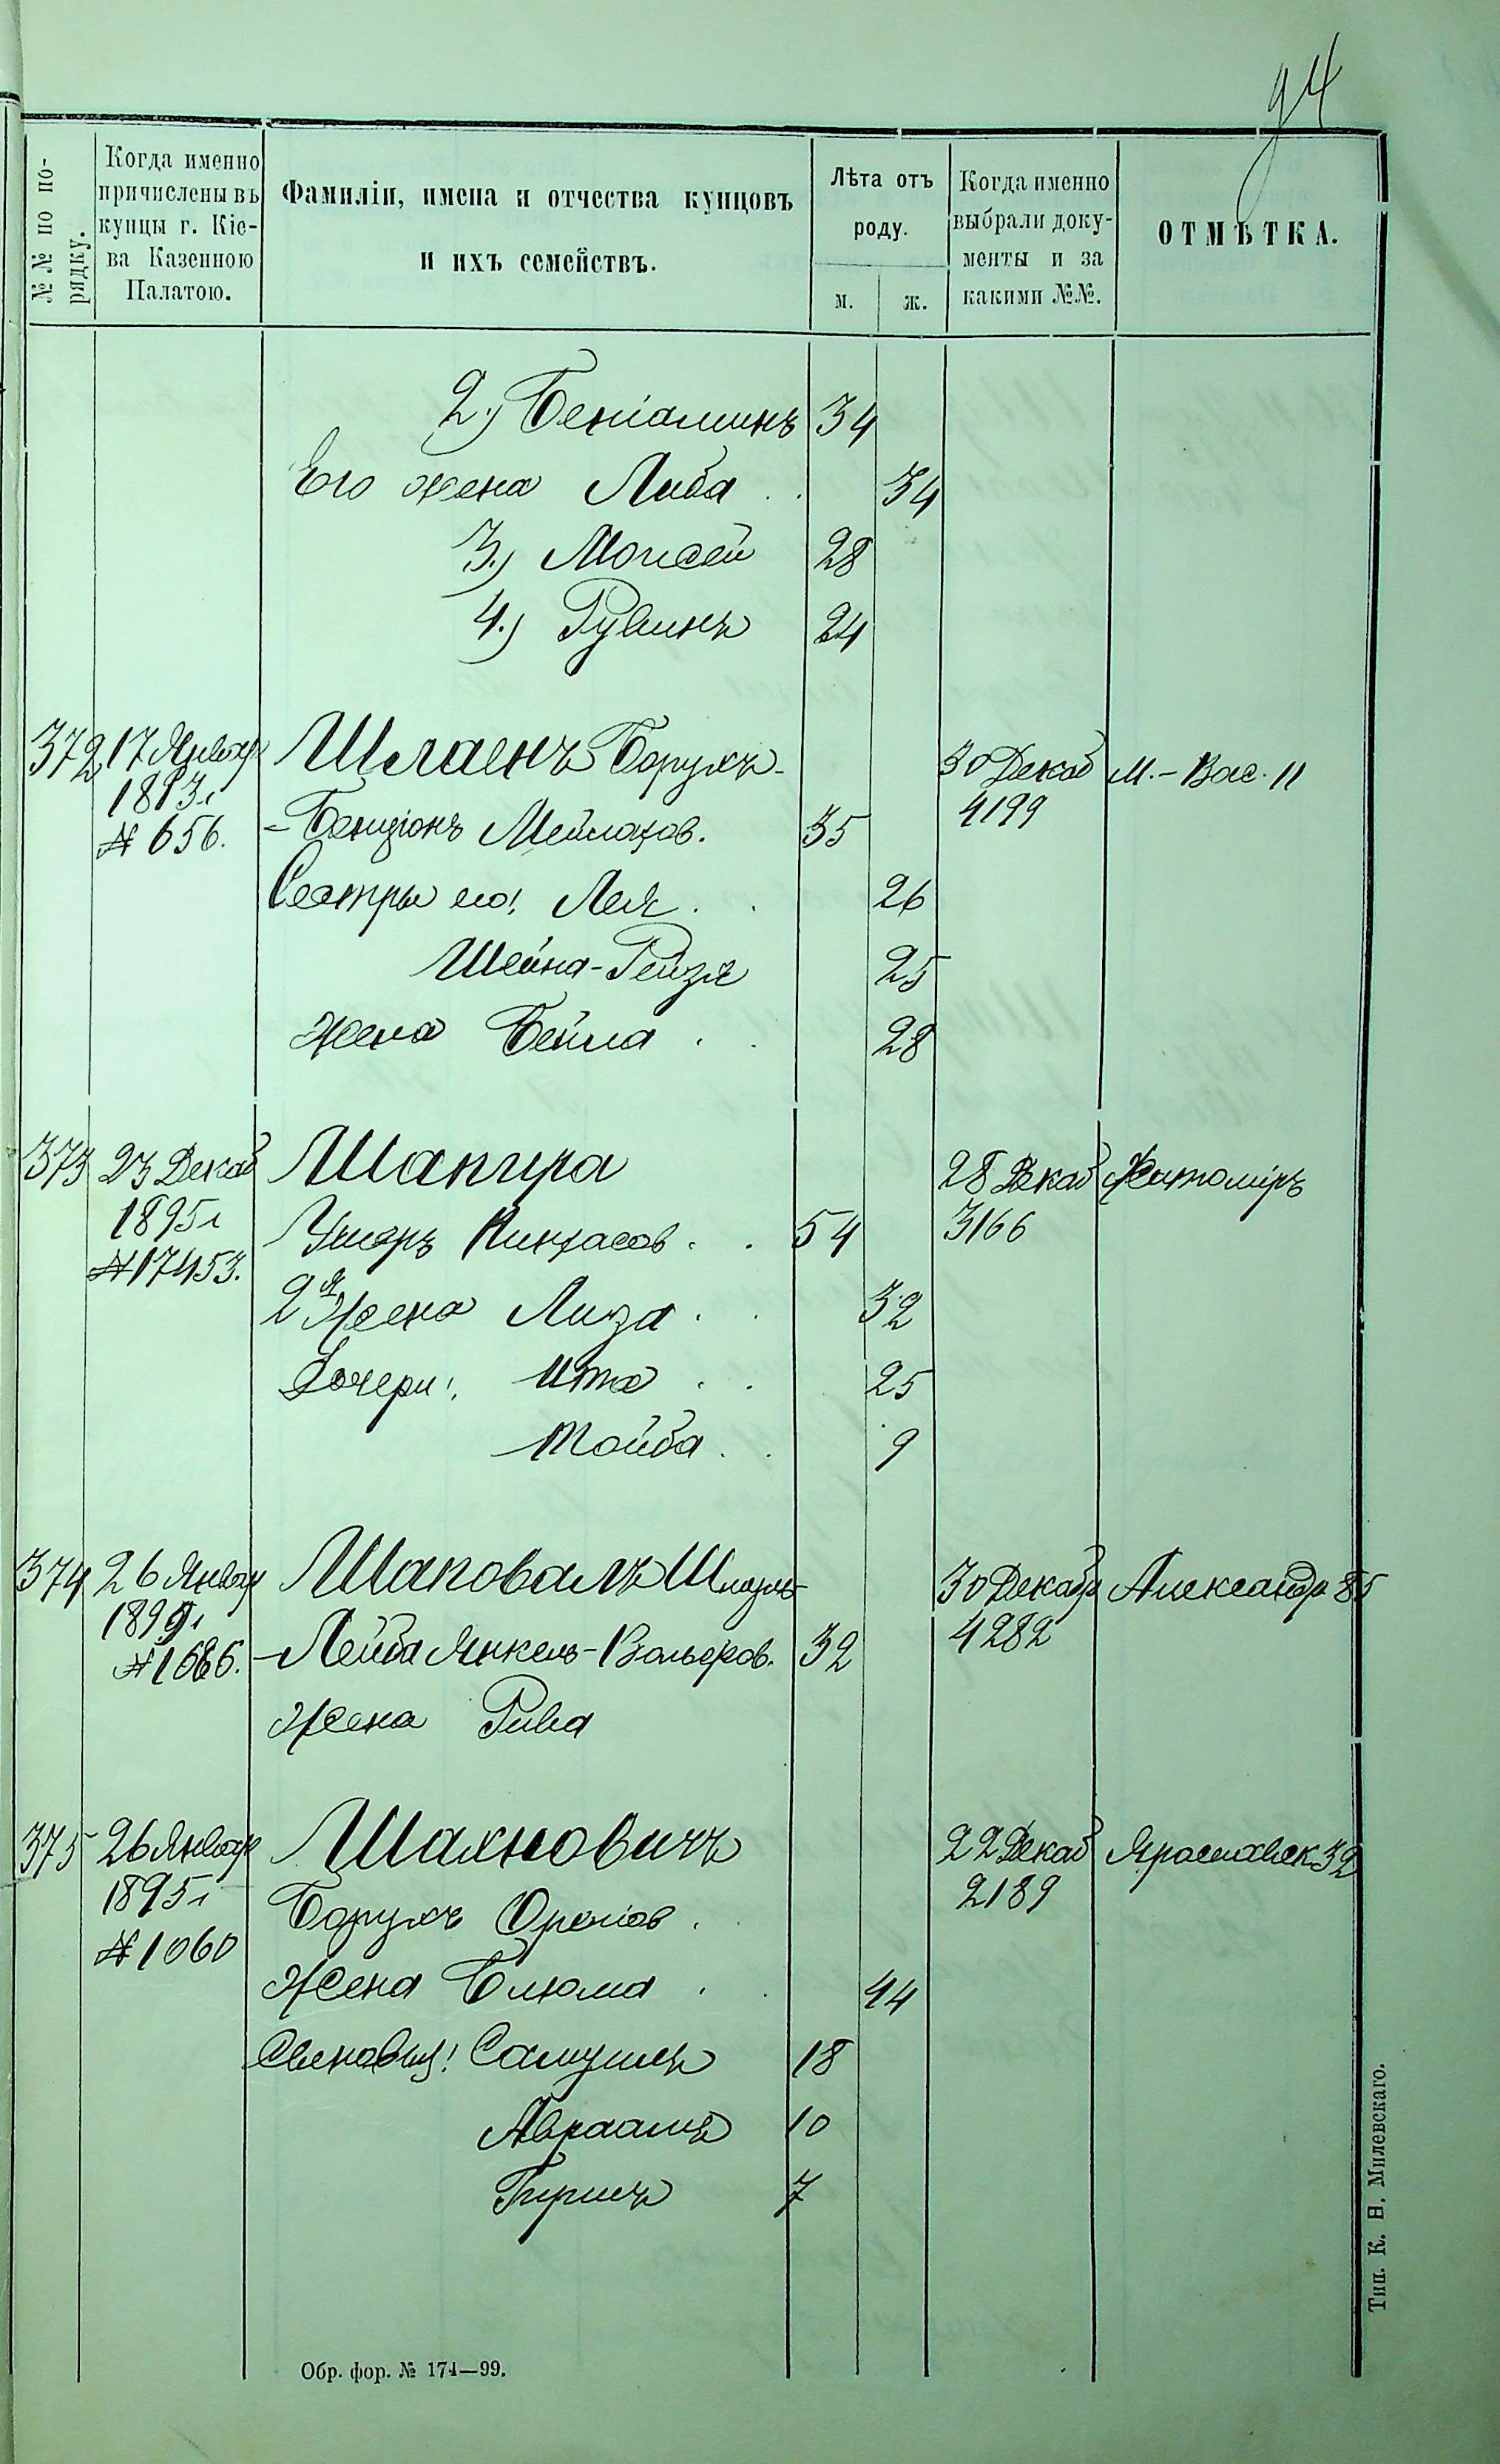 94
№№ по по-
рядку.
Когда именно
причислены въ
купцы г. Кіе-
ва Казенною
Палатою.
Фамиліи, имена и отчества купцовъ
и ихъ семействъ.
Лѣта отъ
роду.
м.
ж.
Когда именно
выбрали доку-
менты и за
какими №№.
ОТМѢТКА.
2.) Беніаминъ 34
Его жена Либа . . 34
3.) Моисей 28
4.) Рувинъ 24
372 17 Январ Шлаенъ Борухъ- 30 Декаб М.-Вас. 11
1893 г 4199
№ 656. -Бенціонъ Мейлахов. 35
Сестры его: Лея . . 26
Шейна-Рейзя 25
Жена Бейла . . 28
373 23 Декаб Шапира 28 Декаб Житоміръ
1895 г Ушеръ Пинхасов. . 54 3166
№ 17453.
2я Жена Лиза . . 32
Дочери: Ита . . 25
Тойба . . 9
374 26 Январ Шаповалъ Шмуль- 30 Декабр Александр 85
1899 г 4282
№ 1686. -Лейба Янкель-Вольфов. 32
Жена Рива
375 26 Январ Шахновичъ 22 Декаб Ярославск 32
1895 г Борухъ Оронов . 2189
№ 1060
Жена Блюма . . 44
Сыновья: Самуилъ 18
Авраамъ 10
Гиршъ 7
Обр. фор. № 174—99.
Тип. К. Н. Милевскаго.